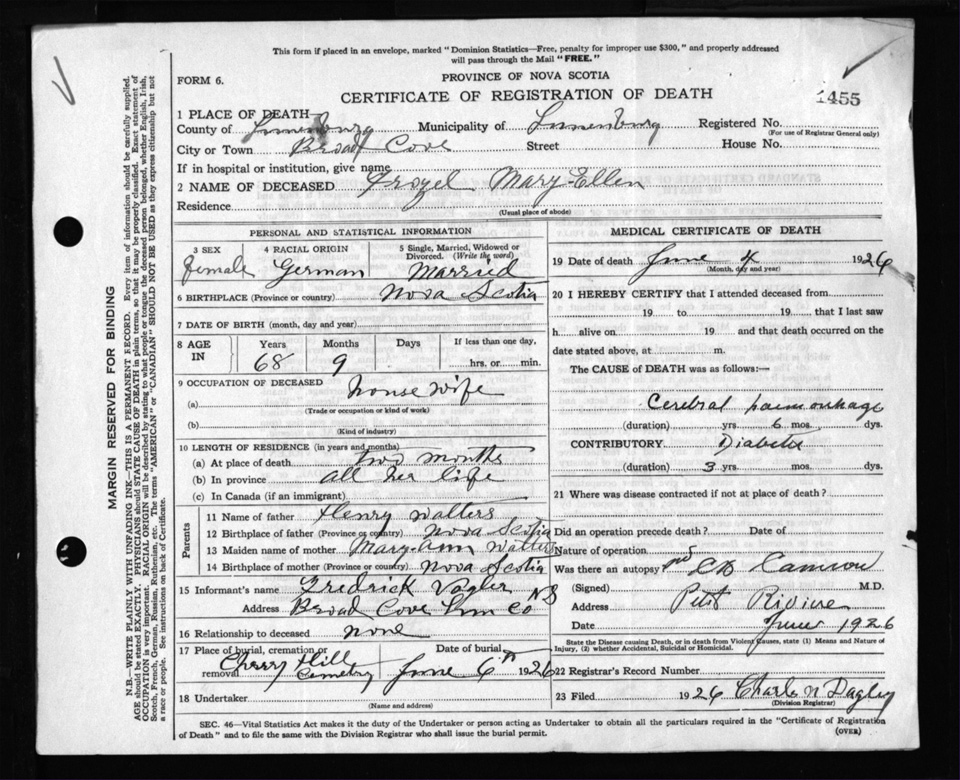 This form if placed in an envelope, marked "Dominion Statistics—Free, penalty for improper use $300," and properly addressed
will pass through the Mail "FREE."
FORM 6.
PROVINCE OF NOVA SCOTIA
CERTIFICATE OF REGISTRATION OF DEATH
1455
1 PLACE OF DEATH
County of Lunenburg Municipality of Lunenburg Registered No.
(For use of Registrar General only)
City or Town Broad Cove Street House No.
If in hospital or institution, give name
2 NAME OF DECEASED Mary Ellen
Residence
(Usual place of abode)
PERSONAL AND STATISTICAL INFORMATION
3 SEX 4 RACIAL ORIGIN 5 Single, Married, Widowed or Divorced. (Write the word)
female German Married
6 BIRTHPLACE (Province or country) Nova Scotia
7 DATE OF BIRTH (month, day and year)
8 AGE IN Years Months Days If less than one day,
68 9 hrs. or min.
9 OCCUPATION OF DECEASED
(a) House wife
(Trade or occupation or kind of work)
(b)
(Kind of industry)
10 LENGTH OF RESIDENCE (in years and months)
(a) At place of death two months
(b) In province all her life
(c) In Canada (if an immigrant)
Parents
11 Name of father Henry Walters
12 Birthplace of father (Province or country) Nova Scotia
13 Maiden name of mother Mary-Ann Walters
14 Birthplace of mother (Province or country) Nova Scotia
15 Informant's name Fredrick Vogler
Address Broad Cove Lun Co NS
16 Relationship to deceased none
17 Place of burial, cremation or removal Cherry Hill Cemetry Date of burial June 6th 1926
18 Undertaker
(Name and address)
MEDICAL CERTIFICATE OF DEATH
19 Date of death June 4 1926
(Month, day and year)
20 I HEREBY CERTIFY that I attended deceased from
19 to 19 that I last saw
h alive on 19 and that death occurred on the
date stated above, at m.
The CAUSE of DEATH was as follows:—
Cerebral haemorrhage
(duration) yrs. 6 mos. dys.
CONTRIBUTORY Diabetes
(duration) 3 yrs. mos. dys.
21 Where was disease contracted if not at place of death?
Did an operation precede death? Date of
Nature of operation
Was there an autopsy?
(Signed) M.D.
Address Petit Riviere
Date June 1926
State the Disease causing Death, or in death from Violent Causes, state (1) Means and Nature of
Injury, (2) whether Accidental, Suicidal or Homicidal.
22 Registrar's Record Number
23 Filed 1926 Charles N Dagley
(Division Registrar)
SEC. 46—Vital Statistics Act makes it the duty of the Undertaker or person acting as Undertaker to obtain all the particulars required in the "Certificate of Registration
of Death" and to file the same with the Division Registrar who shall issue the burial permit.
(OVER)
MARGIN RESERVED FOR BINDING
N.B.—WRITE PLAINLY WITH UNFADING INK—THIS IS A PERMANENT RECORD. Every item of information should be carefully supplied.
AGE should be stated EXACTLY. PHYSICIANS should STATE CAUSE OF DEATH in plain terms, so that it may be properly classified. Exact statement of
OCCUPATION is very important. RACIAL ORIGIN will be described by stating to what people or tongue the deceased person belonged, whether English, Irish,
Scotch, French, German, Russian, Ruthenian, etc. The terms "AMERICAN" or "CANADIAN" SHOULD NOT BE USED as they express citizenship but not
a race or people. See instructions on back of Certificate.